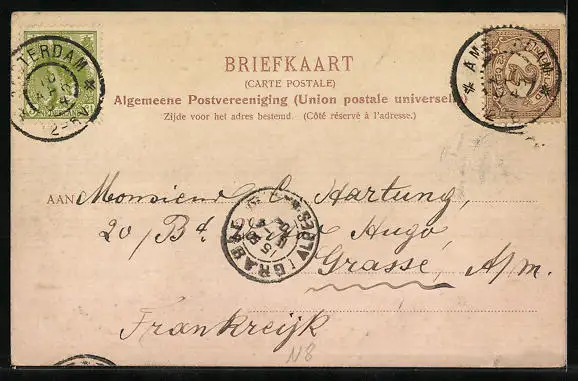 BRIEFKAART
(CARTE POSTALE)
Algemeene Postvereeniging (Union postale universelle)
Zijde voor het adres bestemd. (Côté réservé à l'adresse.)
AMSTERDAM
AAN Monsieur C. Hartung,
20 Bd. Hugo
Grasse, A/m.
Frankreijk
GRASSE
N8